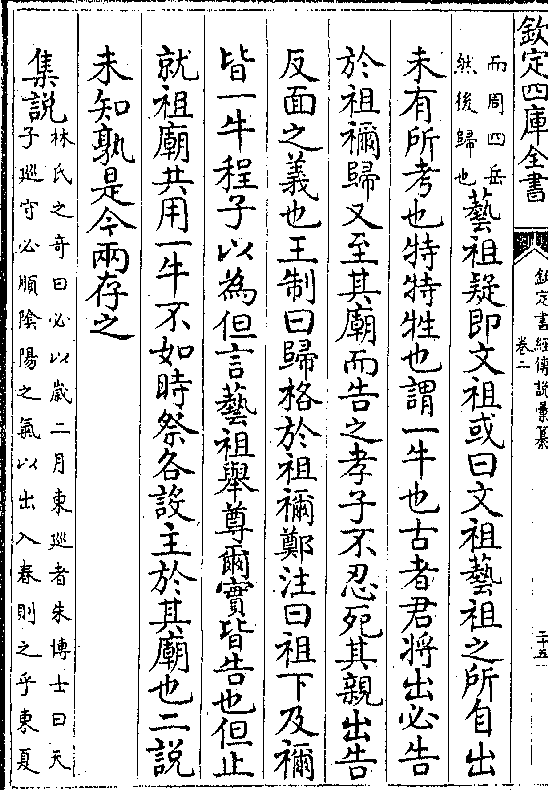 欽定四庫全書
欽定書經傳說彙纂
卷二
三十五
而周四岳
然後歸也
藝祖疑即文祖或曰文祖藝祖之所自出
未有所考也特特牲也謂一牛也古者君將出必告
於祖禰歸又至其廟而告之孝子不忍死其親出告
反面之義也王制曰歸格於祖禰鄭注曰祖下及禰
皆一牛程子以為但言藝祖舉尊爾實皆告也但止
就祖廟共用一牛不如時祭各設主於其廟也二說
未知孰是今兩存之
集說
林氏之奇曰必以歲二月東廵者朱博士曰天
子廵守必順陰陽之氣以出入春則之乎東夏